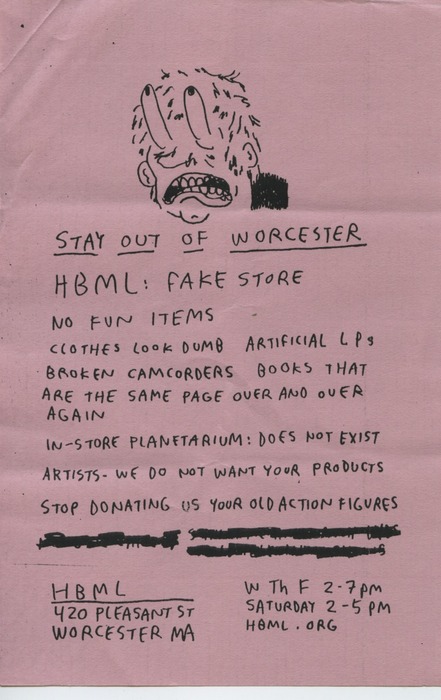 STAY OUT OF WORCESTER
HBML: FAKE STORE
NO FUN ITEMS
CLOTHES LOOK DUMB ARTIFICIAL LPs
BROKEN CAMCORDERS BOOKS THAT
ARE THE SAME PAGE OVER AND OVER
AGAIN
IN-STORE PLANETARIUM: DOES NOT EXIST
ARTISTS- WE DO NOT WANT YOUR PRODUCTS
STOP DONATING US YOUR OLD ACTION FIGURES
HBML
420 PLEASANT ST
WORCESTER MA
W Th F 2-7pm
SATURDAY 2-5 PM
HBML.ORG